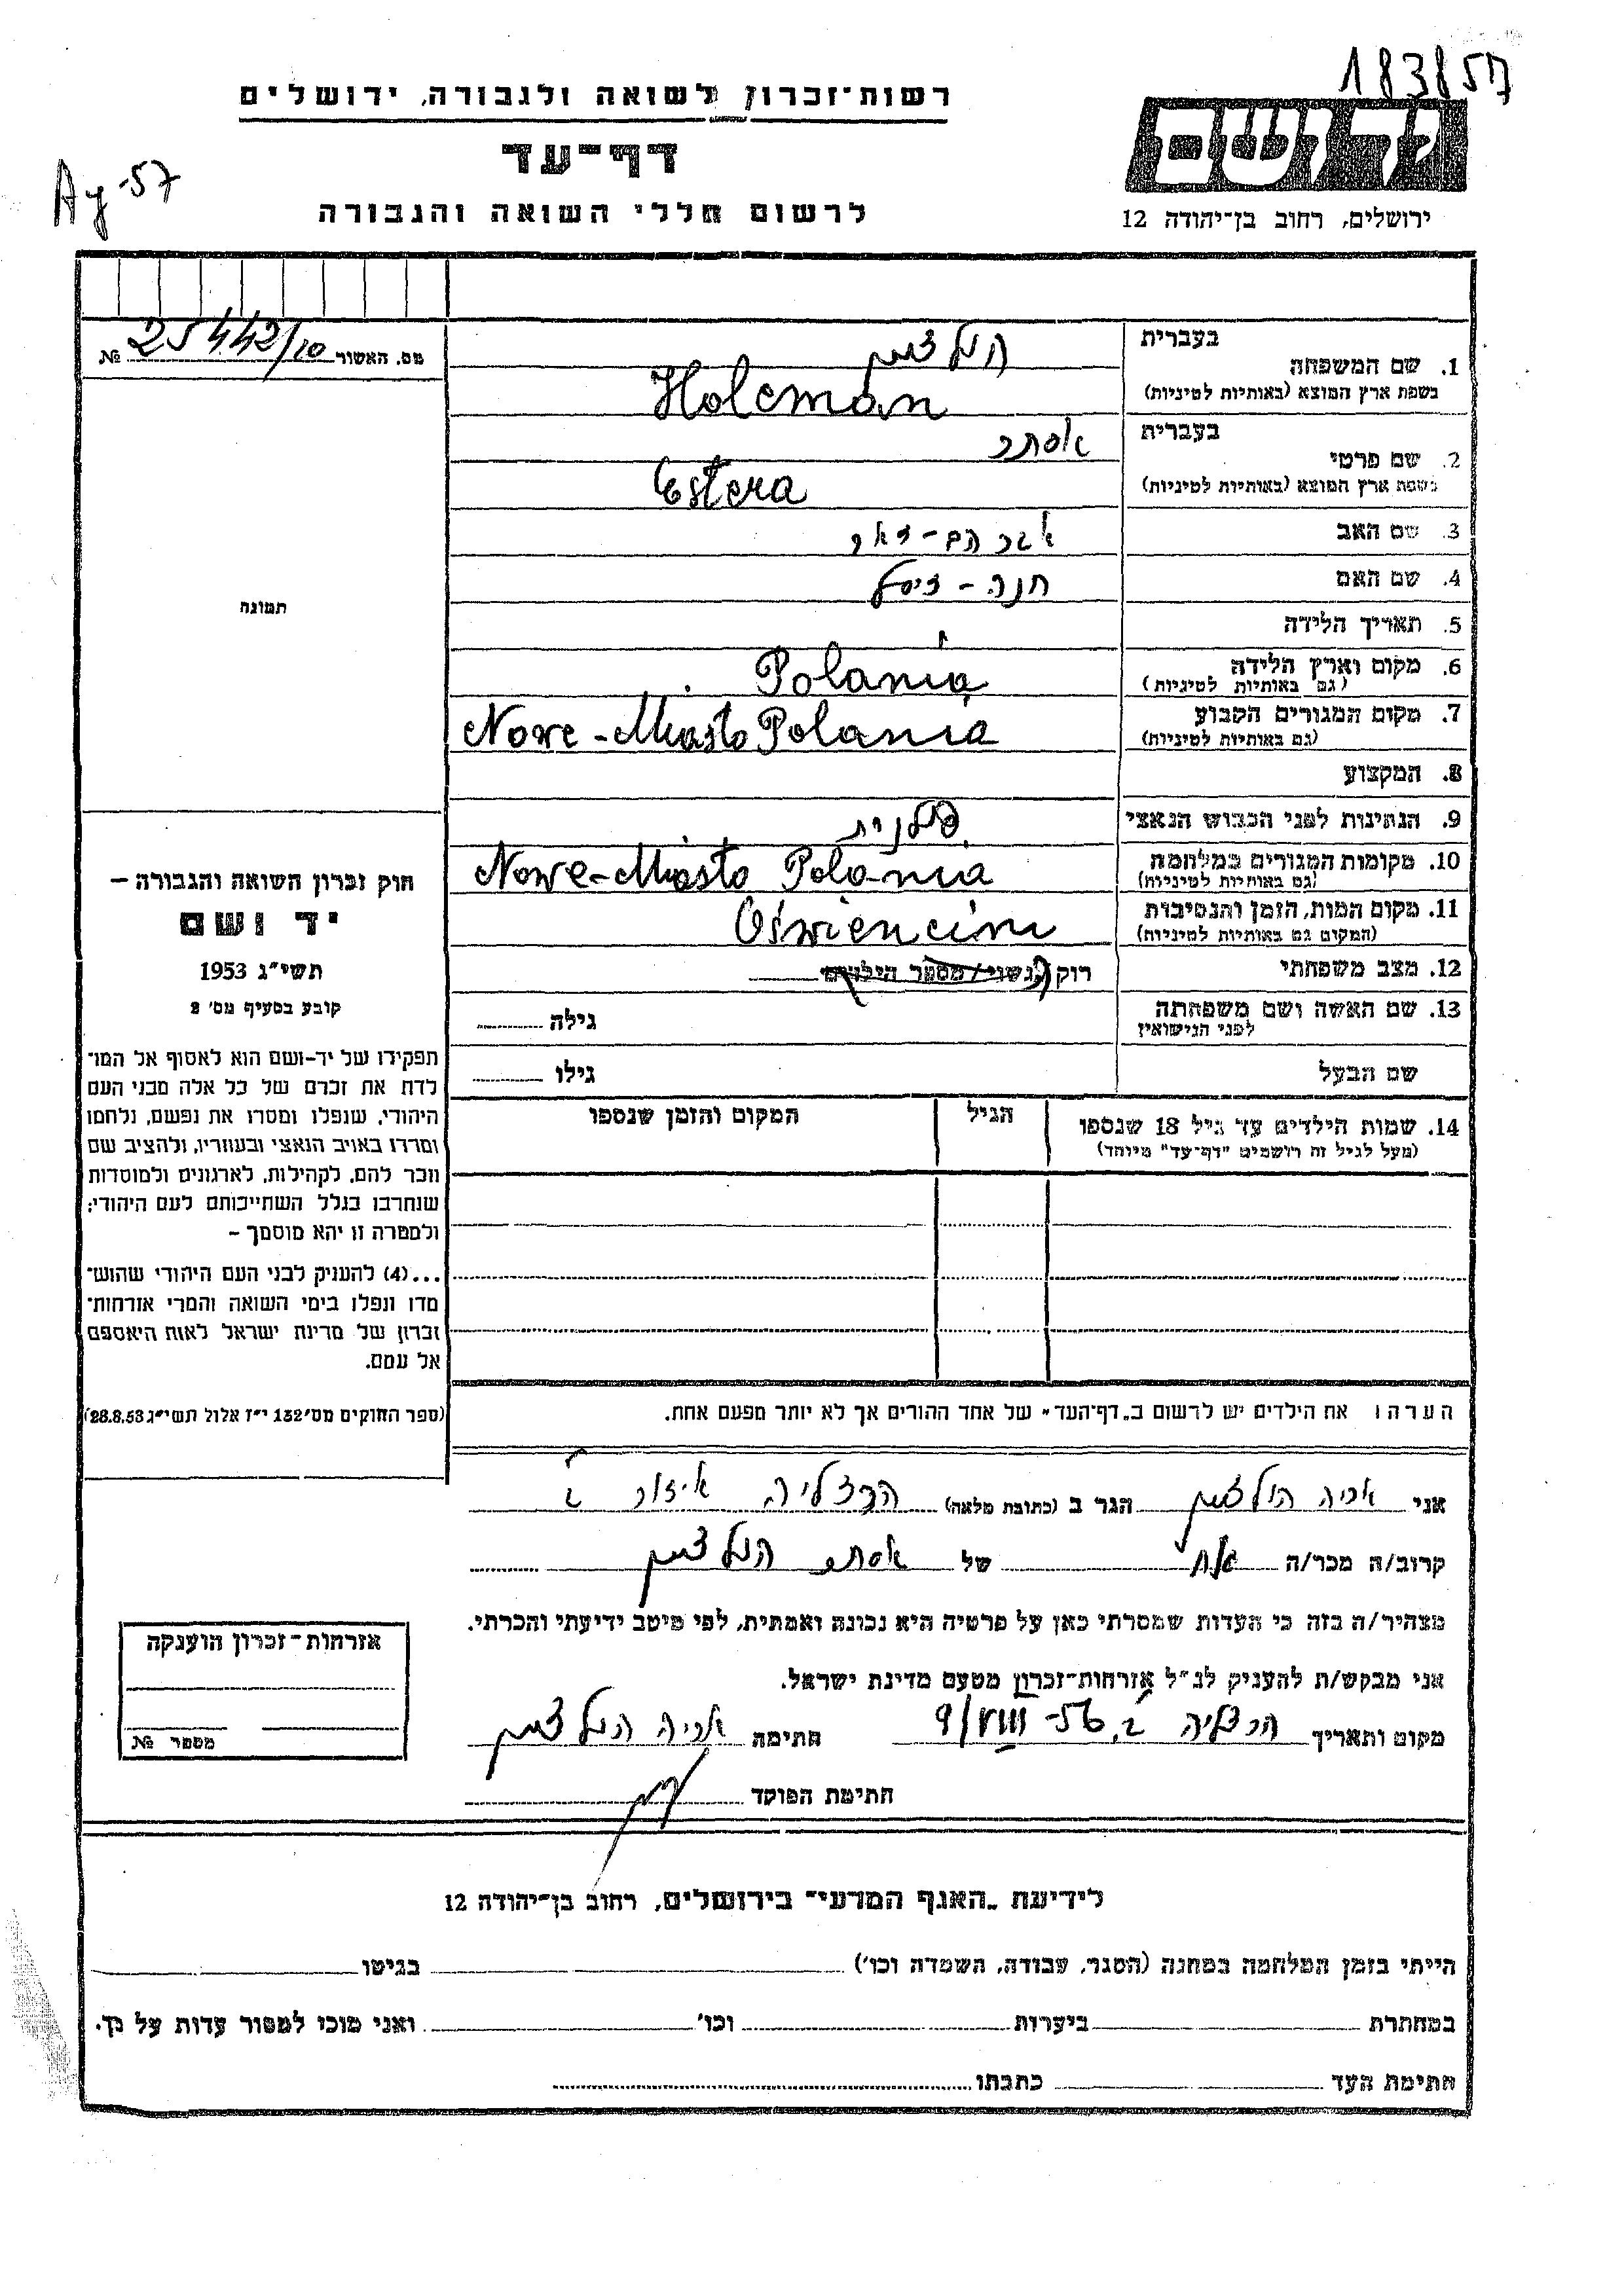 183857
רשות־זכרון לשואה ולגבורה, ירושלים
דף־עד
לרשום חללי השואה והגבורה
Ay-57
יד ושם
ירושלים, רחוב בן־יהודה 12
מס. האשור 25442/10 №
בעברית הולצמן
1. שם המשפחה
בשפת ארץ המוצא (באותיות לטיניות) Holcman
בעברית אסתר
2. שם פרטי
בשפת ארץ המוצא (באותיות לטיניות) Estera
3. שם האב אברהם-
4. שם האם חנה-
5. תאריך הלידה
6. מקום וארץ הלידה Polania
(גם באותיות לטיניות)
7. מקום המגורים הקבוע Nowe-Miasto Polania
(גם באותיות לטיניות)
8. המקצוע
9. הנתינות לפני הכבוש הנאצי פולנית
10. מקומות המגורים במלחמה Nowe-Miasto Polania
(גם באותיות לטיניות)
11. מקום המות, הזמן והנסיבות Oświencim
(המקום גם באותיות לטיניות)
12. מצב משפחתי רווק/נשוי/מספר הילדים
13. שם האשה ושם משפחתה גילה
לפני הנישואין
שם הבעל גילו
14. שמות הילדים עד גיל 18 שנספו הגיל המקום והזמן שנספו
(מעל לגיל זה רושמים "דף-עד" מיוחד)
תמונה
חוק זכרון השואה והגבורה –
יד ושם
תשי״ג 1953
קובע בסעיף מס׳ 2
תפקידו של יד-ושם הוא לאסוף אל המו־
לדת את זכרם של כל אלה מבני העם
היהודי, שנפלו ומסרו את נפשם, נלחמו
ומרדו באויב הנאצי ובעוזריו, ולהציב שם
וזכר להם, לקהילות, לארגונים ולמוסדות
שנחרבו בגלל השתייכותם לעם היהודי;
ולמטרה זו יהא מוסמך –
...(4) להעניק לבני העם היהודי שהוש־
מדו ונפלו בימי השואה והמרי אזרחות־
זכרון של מדינת ישראל לאות היאספם
אל עמם.
(ספר החוקים מס׳ 132 י״ז אלול תשי״ג 28.8.53)
הערה: את הילדים יש לרשום ב„דף־העד״ של אחד ההורים אך לא יותר מפעם אחת.
אני אריה הולצמן הגר ב (כתובת מלאה) הרצליה איזור ב
קרוב/ה מכר/ה אח של אסתר הולצמן
מצהיר/ה בזה כי העדות שמסרתי כאן על פרטיה היא נכונה ואמתית, לפי מיטב ידיעתי והכרתי.
אני מבקש/ת להעניק לנ״ל אזרחות־זכרון מטעם מדינת ישראל.
מקום ותאריך הרצליה ב, 9/VIII-56 חתימה אריה הולצמן
חתימת הפוקד
אזרחות־זכרון הוענקה
מספר №
לידיעת „האגף המדעי״ בירושלים, רחוב בן־יהודה 12
הייתי בזמן המלחמה במחנה (הסגר, עבודה, השמדה וכו׳) בגיטו
במחתרת ביערות וכו׳ ואני מוכן למסור עדות על כך.
חתימת העד כתבתו